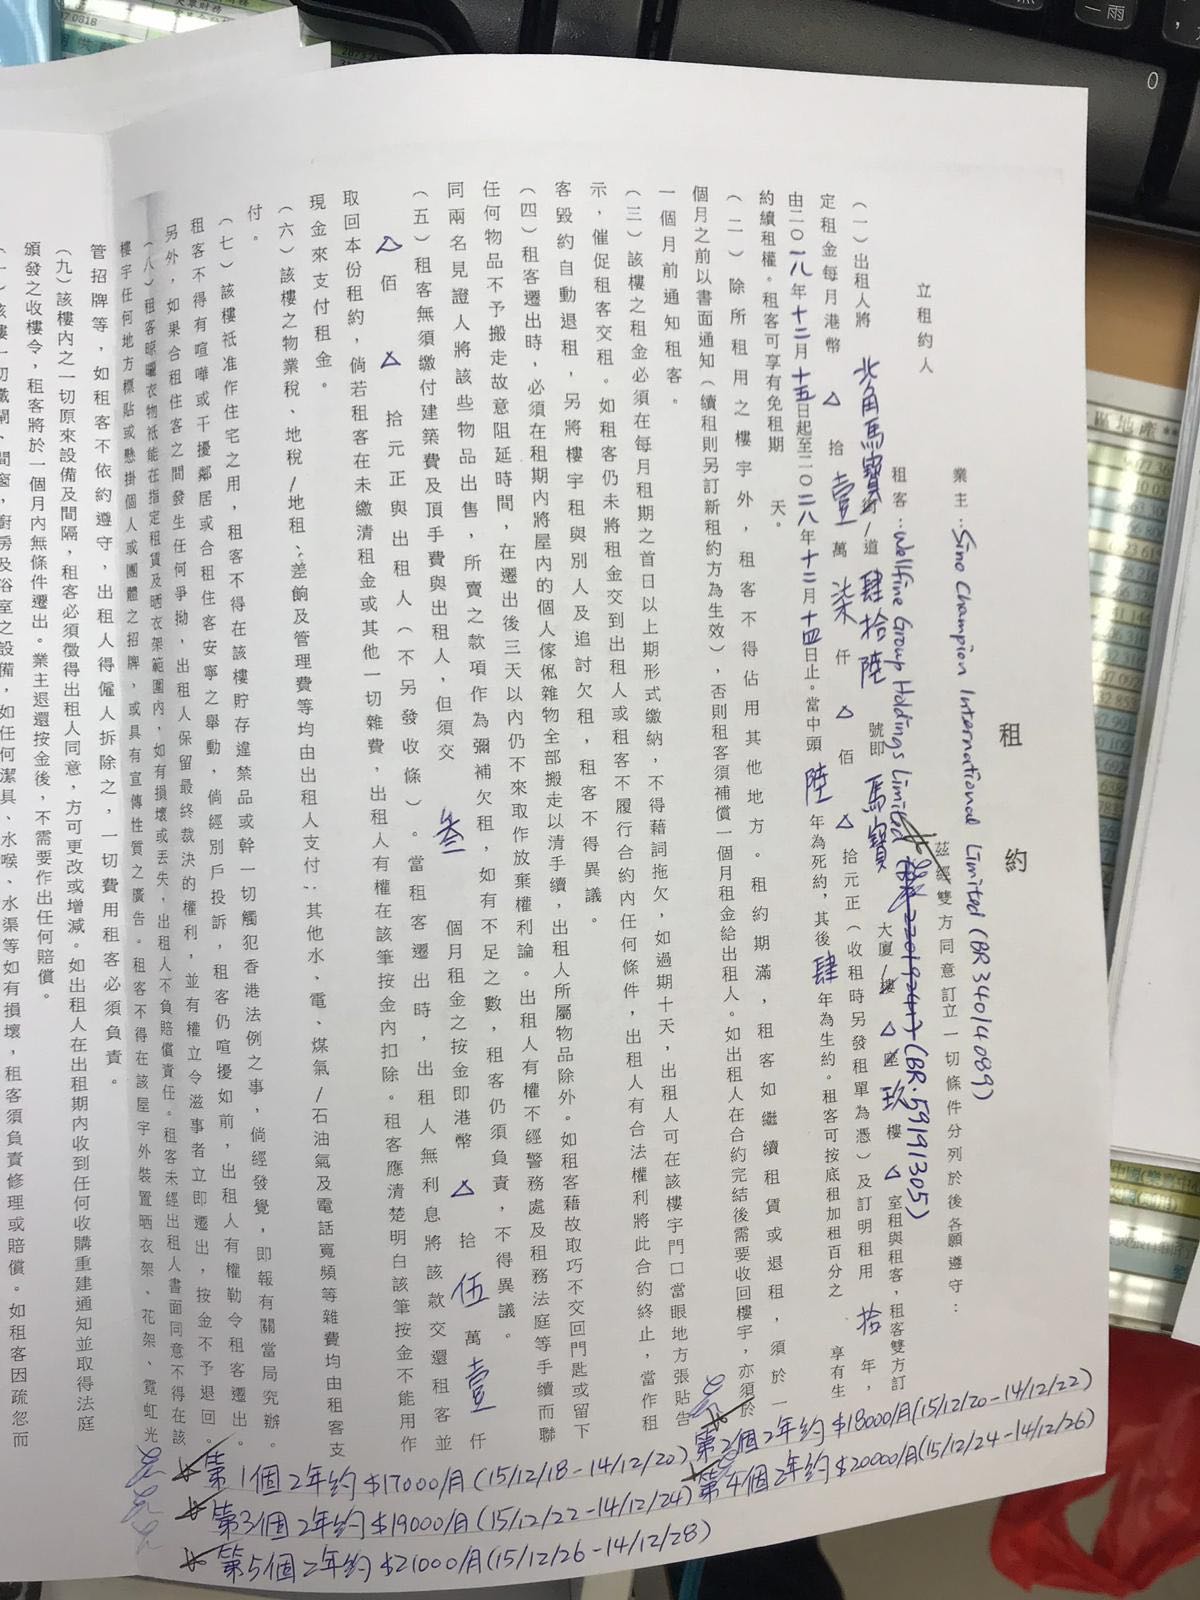 租約
業主：Sino Champion International Limited (BR 34014089)
立租約人
茲經雙方同意訂立一切條件分列於後各願遵守：
租客：Wallfine Group Holdings Limited (BR. 59191305)
(一)出租人將 北角馬寶街/道 肆拾陸 號即 馬寶 大廈/樓 △座 玖樓 △室租與租客，租客雙方訂
定租金每月港幣 △ 拾 壹 萬 柒 仟 △ 佰 △ 拾元正（收租時另發租單為憑）及訂明租用 拾 年，
由二〇一八年十二月十五日起至二〇二八年十二月十四日止。當中頭 陸 年為死約，其後 肆 年為生約。租客可按底租加租百分之 享有生
約續租權。租客可享有免租期 天。
(二) 除所租用之樓宇外，租客不得佔用其他地方。租約期滿，租客如繼續租賃或退租，須於一
個月之前以書面通知（續租則另訂新租約方為生效），否則租客須補償一個月租金給出租人。如出租人在合約完結後需要收回樓宇，亦須於
一個月前通知租客。
(三) 該樓之租金必須在每月租期之首日以上期形式繳納，不得藉詞拖欠，如過期十天，出租人可在該樓宇門口當眼地方張貼告
示，催促租客交租。如租客仍未將租金交到出租人或租客不履行合約內任何條件，出租人有合法權利將此合約終止，當作租
客毀約自動退租，另將樓宇租與別人及追討欠租，租客不得異議。
(四) 租客遷出時，必須在租期內將屋內的個人傢俬雜物全部搬走以清手續，出租人所屬物品除外。如租客藉故取巧不交回門匙或留下
任何物品不予搬走故意阻延時間，在遷出後三天以內仍不來取作放棄權利論。出租人有權不經警務處及租務法庭等手續而聯
同兩名見證人將該些物品出售，所賣之款項作為彌補欠租，如有不足之數，租客仍須負責，不得異議。
(五) 租客無須繳付建築費及頂手費與出租人，但須交 叁 個月租金之按金即港幣 △ 拾 伍 萬 壹 仟
△ 佰 △ 拾元正與出租人（不另發收條）。當租客遷出時，出租人無利息將該款交還租客並
取回本份租約，倘若租客在未繳清租金或其他一切雜費，出租人有權在該筆按金內扣除。租客應清楚明白該筆按金不能用作
現金來支付租金。
(六) 該樓之物業稅、地稅/地租；差餉及管理費等均由出租人支付；其他水、電、煤氣/石油氣及電話寬頻等雜費均由租客支
付。
(七) 該樓祇准作住宅之用，租客不得在該樓貯存違禁品或幹一切觸犯香港法例之事，倘經發覺，即報有關當局究辦。
租客不得有喧嘩或干擾鄰居或合租住客安寧之舉動，倘經別戶投訴，租客仍喧擾如前，出租人有權勒令租客遷出。
另外，如果合租住客之間發生任何爭拗，出租人保留最終裁決的權利，並有權立令滋事者立即遷出，按金不予退回。
(八) 租客晾曬衣物祇能在指定租賃及晒衣架範圍內，如有損壞或丟失，出租人不負賠償責任。租客未經出租人書面同意不得在該
樓宇任何地方標貼或懸掛個人或團體之招牌，或具有宣傳性質之廣告。租客不得在該屋宇外裝置晒衣架、花架、霓虹光
管招牌等，如租客不依約遵守，出租人得僱人拆除之，一切費用租客必須負責。
(九) 該樓內之一切原來設備及間隔，租客必須徵得出租人同意，方可更改或增減。如出租人在出租期內收到任何收購重建通知並取得法庭
頒發之收樓令，租客將於一個月內無條件遷出。業主退還按金後，不需要作出任何賠償。
該樓一切鐵閘、門窗，廚房及浴室之設備，如任何潔具、水喉、水渠等如有損壞，租客須負責修理或賠償。如租客因疏忽而
第1個2年約 $17000/月(15/12/18-14/12/20)
第2個2年約 $18000/月(15/12/20-14/12/22)
第3個2年約 $19000/月(15/12/22-14/12/24)
第4個2年約 $20000/月(15/12/24-14/12/26)
第5個2年約 $21000/月(15/12/26-14/12/28)